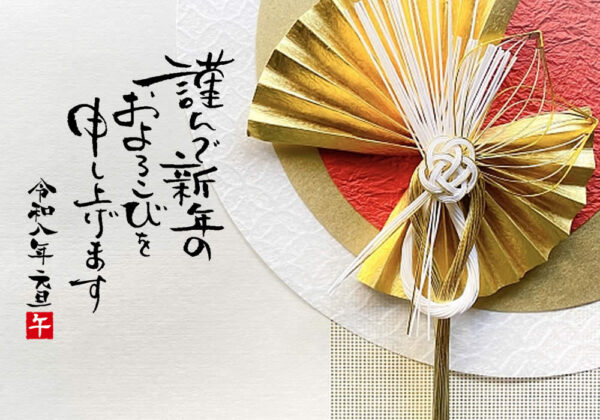 謹んで新年の
およろこびを
申し上げます
令和八年 元旦
午